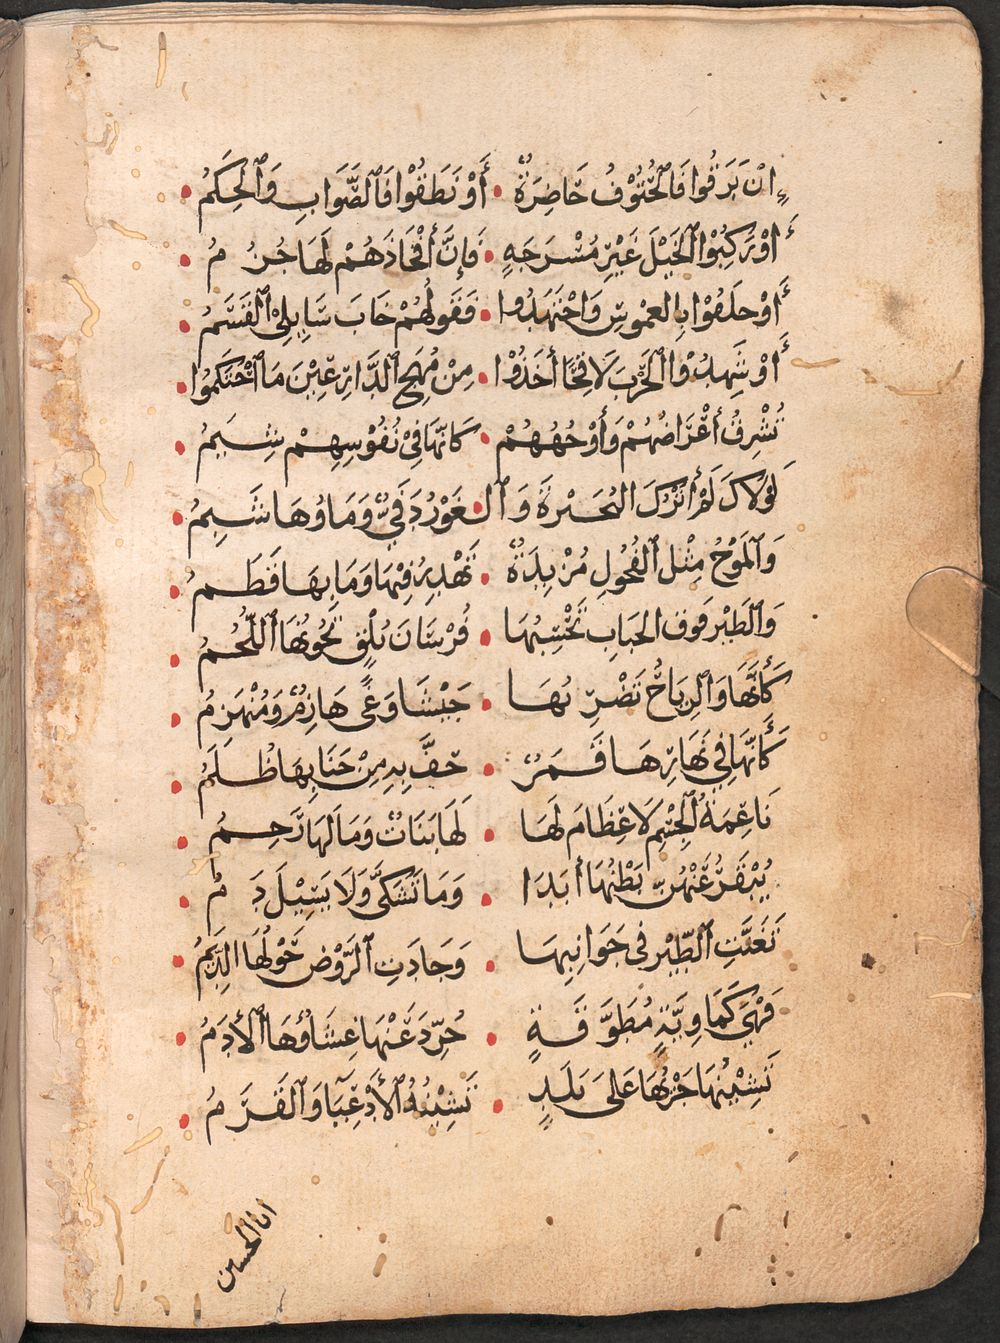 إِنْ بَرَقُوا فَالْحُتُوْفُ حَاضِرَةٌ • أَوْ نَطَقُوْا فَالصَّوَابِ وَالْحِكَمُ •
أَوْ رَكِبُوْا الْخَيْلَ غَيْرِ مُسْرَجَةٍ • فَإِنَّ أَفْخَاذَهُمْ لَهَا حُزُمُ •
أَوْ حَلَفُوْا بِالغموسِ وَاجْتَهَدُوا • فَقَولُهُمْ خَابَ سَايِلِيْ الْقَسَمُ •
أَوْ شَهِدُوْا الْحَرْبَ لَاقِحًا أَخَذُوْا • مِنْ مُهَجِ الدَّارِعِيْنَ مَا احْتَكَمُوا •
تُشْرِفُ أَعْرَاضُهُمْ وَأَوْجُهُهُمْ • كَانَّهَا فِيْ نُفُوْسِهِمْ شِيَمُ •
لَوْلَاكَ لَمْ أَتْرُكَ الْبُحَيْرةَ وَالـ • ـغَوْرُ دَفِيْ وَمَاؤُهَا شَبِمُ •
وَالْمَوْجُ مِثْل الْفُحُولِ مُزْبِدَةٌ • تَهْدِرُ فِيْهَا وَمَا بِهَا قَطَمُ •
وَالطَّيْر فَوقَ الحَبَابِ تَحْسِبُهَا • فُرْسَانَ بُلْقٍ تَخُونُهَا اللُّجُمُ •
كَأَنَّهَا وَالرِيَاحُ تَضْرِبُهَا • جَيْشَا وَغًى هَازِمٌ وَمُنْهَزِمُ •
كَأَنَّهَا فِي نَهَارِهَا قَمَرٌ • حَفَّ بِهِ مِنْ جَنَابِهَا ظُلَمُ •
نَاعِمَةُ الْجِسْمِ لَا عِظَامَ لَهَا • لَهَا بَنَاتٌ وَمَا لَهَا رَحِمُ •
يُبْقَرُ عَنْهُنَّ بَطْنُهَا أَبَدَا • وَمَا تَشَكَّى وَلَا يَسِيْلَ دَمُ •
تَغَنَّتِ الطَّيْر فِي جَوَانِبِهَا • وَجَادَتِ الرَّوْضَ حَوْلَهَا الدِّيَمُ •
فَهْيَ كَمَاوِيَّةٍ مُطَوَّقَةٍ • جُرِّدَ عَنْهَا غِشَاؤُهَا الْأَدَمُ •
تَشِيْنُهَا جَرْيُهَا عَلَى بَلَدٍ • تَشِيْنُهُ الْأَدْعِيَآ وَالْقَزَمُ •